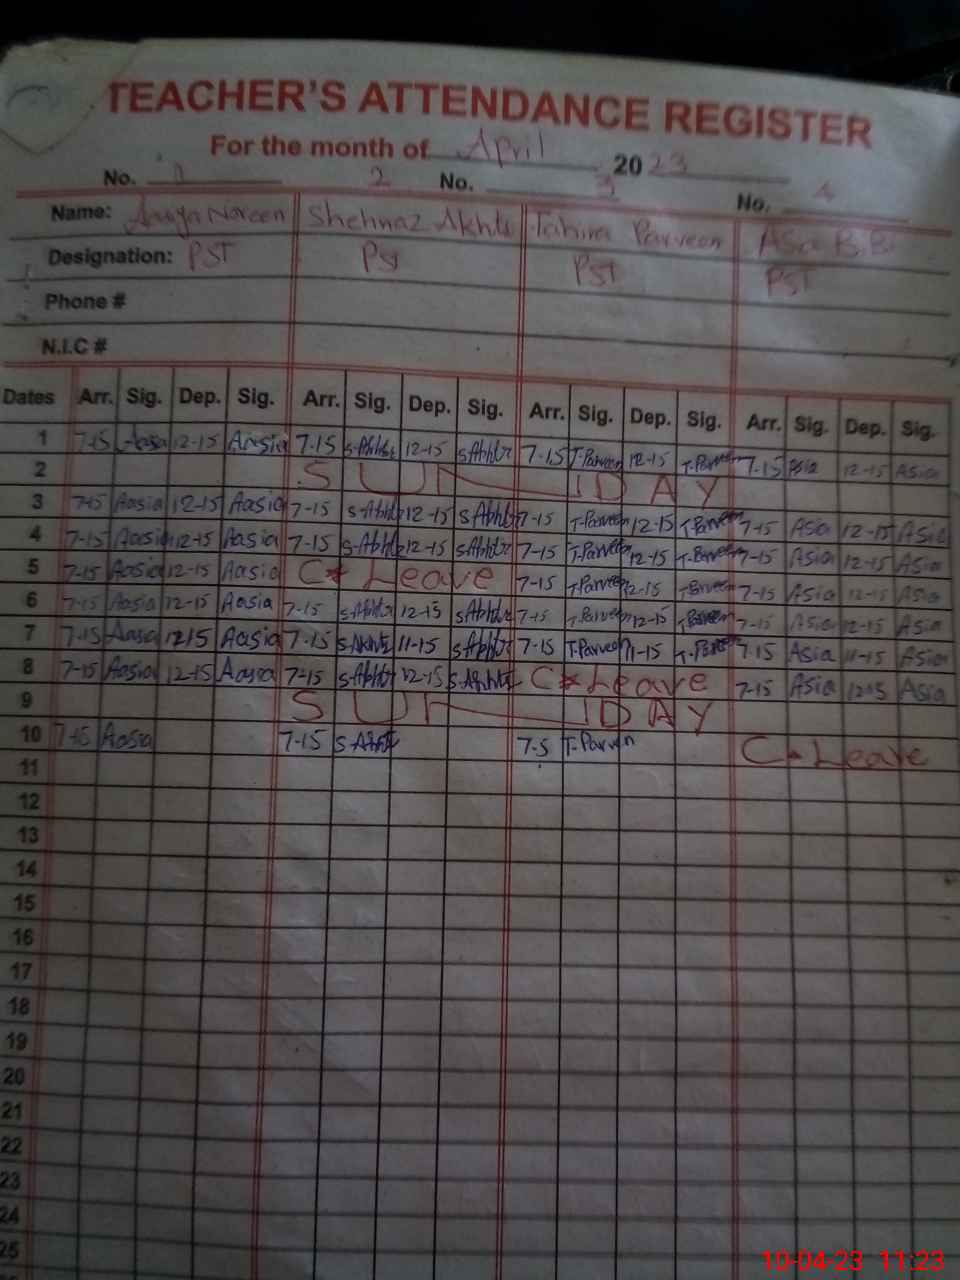 TEACHER'S ATTENDANCE REGISTER
For the month of April 2023
No. 1 2 No. 3 No. 4
Name: Shehnaz Akhte Tahira Parveen Asa B.B.
Designation: PST PST PST PST
Phone #
N.I.C #
Dates Arr. Sig. Dep. Sig. Arr. Sig. Dep. Sig. Arr. Sig. Dep. Sig. Arr. Sig. Dep. Sig.
1 7-15 Aasa 12-15 Aasia 7-15 S.Akhtr 12-15 S.Akhtr 7-15 T.Parveen 12-15 T.Parveen 7-15 Asia 12-15 Asia
2 SUNDAY
3 7-15 Aasia 12-15 Aasia 7-15 S.Akhtr 12-15 S.Akhtr 7-15 T.Parveen 12-15 T.Parveen 7-15 Asia 12-15 Asia
4 7-15 Aasia 12-15 Aasia 7-15 S.Akhtr 12-15 S.Akhtr 7-15 T.Parveen 12-15 T.Parveen 7-15 Asia 12-15 Asia
5 7-15 Aasia 12-15 Aasia C* Leave 7-15 T.Parveen 12-15 T.Parveen 7-15 Asia 12-15 Asia
6 7-15 Aasia 12-15 Aasia 7-15 S.Akhtr 12-15 S.Akhtr 7-15 T.Parveen 12-15 7-15 Asia 12-15 Asia
7 7-15 Aasa 12 15 Aasia 7-15 S.Akhtr 11-15 S.Akhtr 7-15 T.Parveen 11-15 7.15 Asia 11-15 Asia
8 7-15 Aasia 12-15 Aasia 7-15 S.Akhtr 12-15 S.Akhtr C* Leave 7-15 Asia 12-15 Asia
9 SUNDAY
10 7-15 Aasia 7-15 7-5 T.Parven C* Leave
11
12
13
14
15
16
17
18
19
20
21
22
23
24
25
10-04-23 11:23